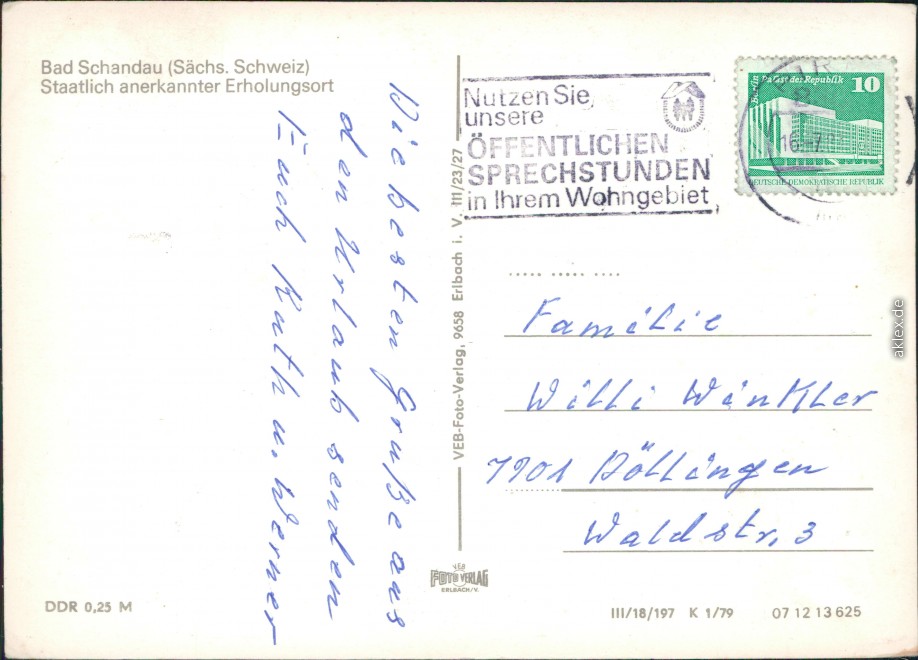 Bad Schandau (Sächs. Schweiz)
Staatlich anerkannter Erholungsort
Die besten Grüße aus
den Urlaub senden
Euch Ruth u. Werner
DDR 0,25 M
VEB-Foto-Verlag, 9658 Erlbach i. V. III/23/27
VEB
FOTO VERLAG
ERLBACH/V.
Nutzen Sie
unsere
ÖFFENTLICHEN
SPRECHSTUNDEN
in Ihrem Wohngebiet
Berlin Palast der Republik 10
DEUTSCHE DEMOKRATISCHE REPUBLIK
Familie
Willi Winkler
7901 Döllingen
Waldstr. 3
III/18/197 K 1/79 07 12 13 625
aklex.de